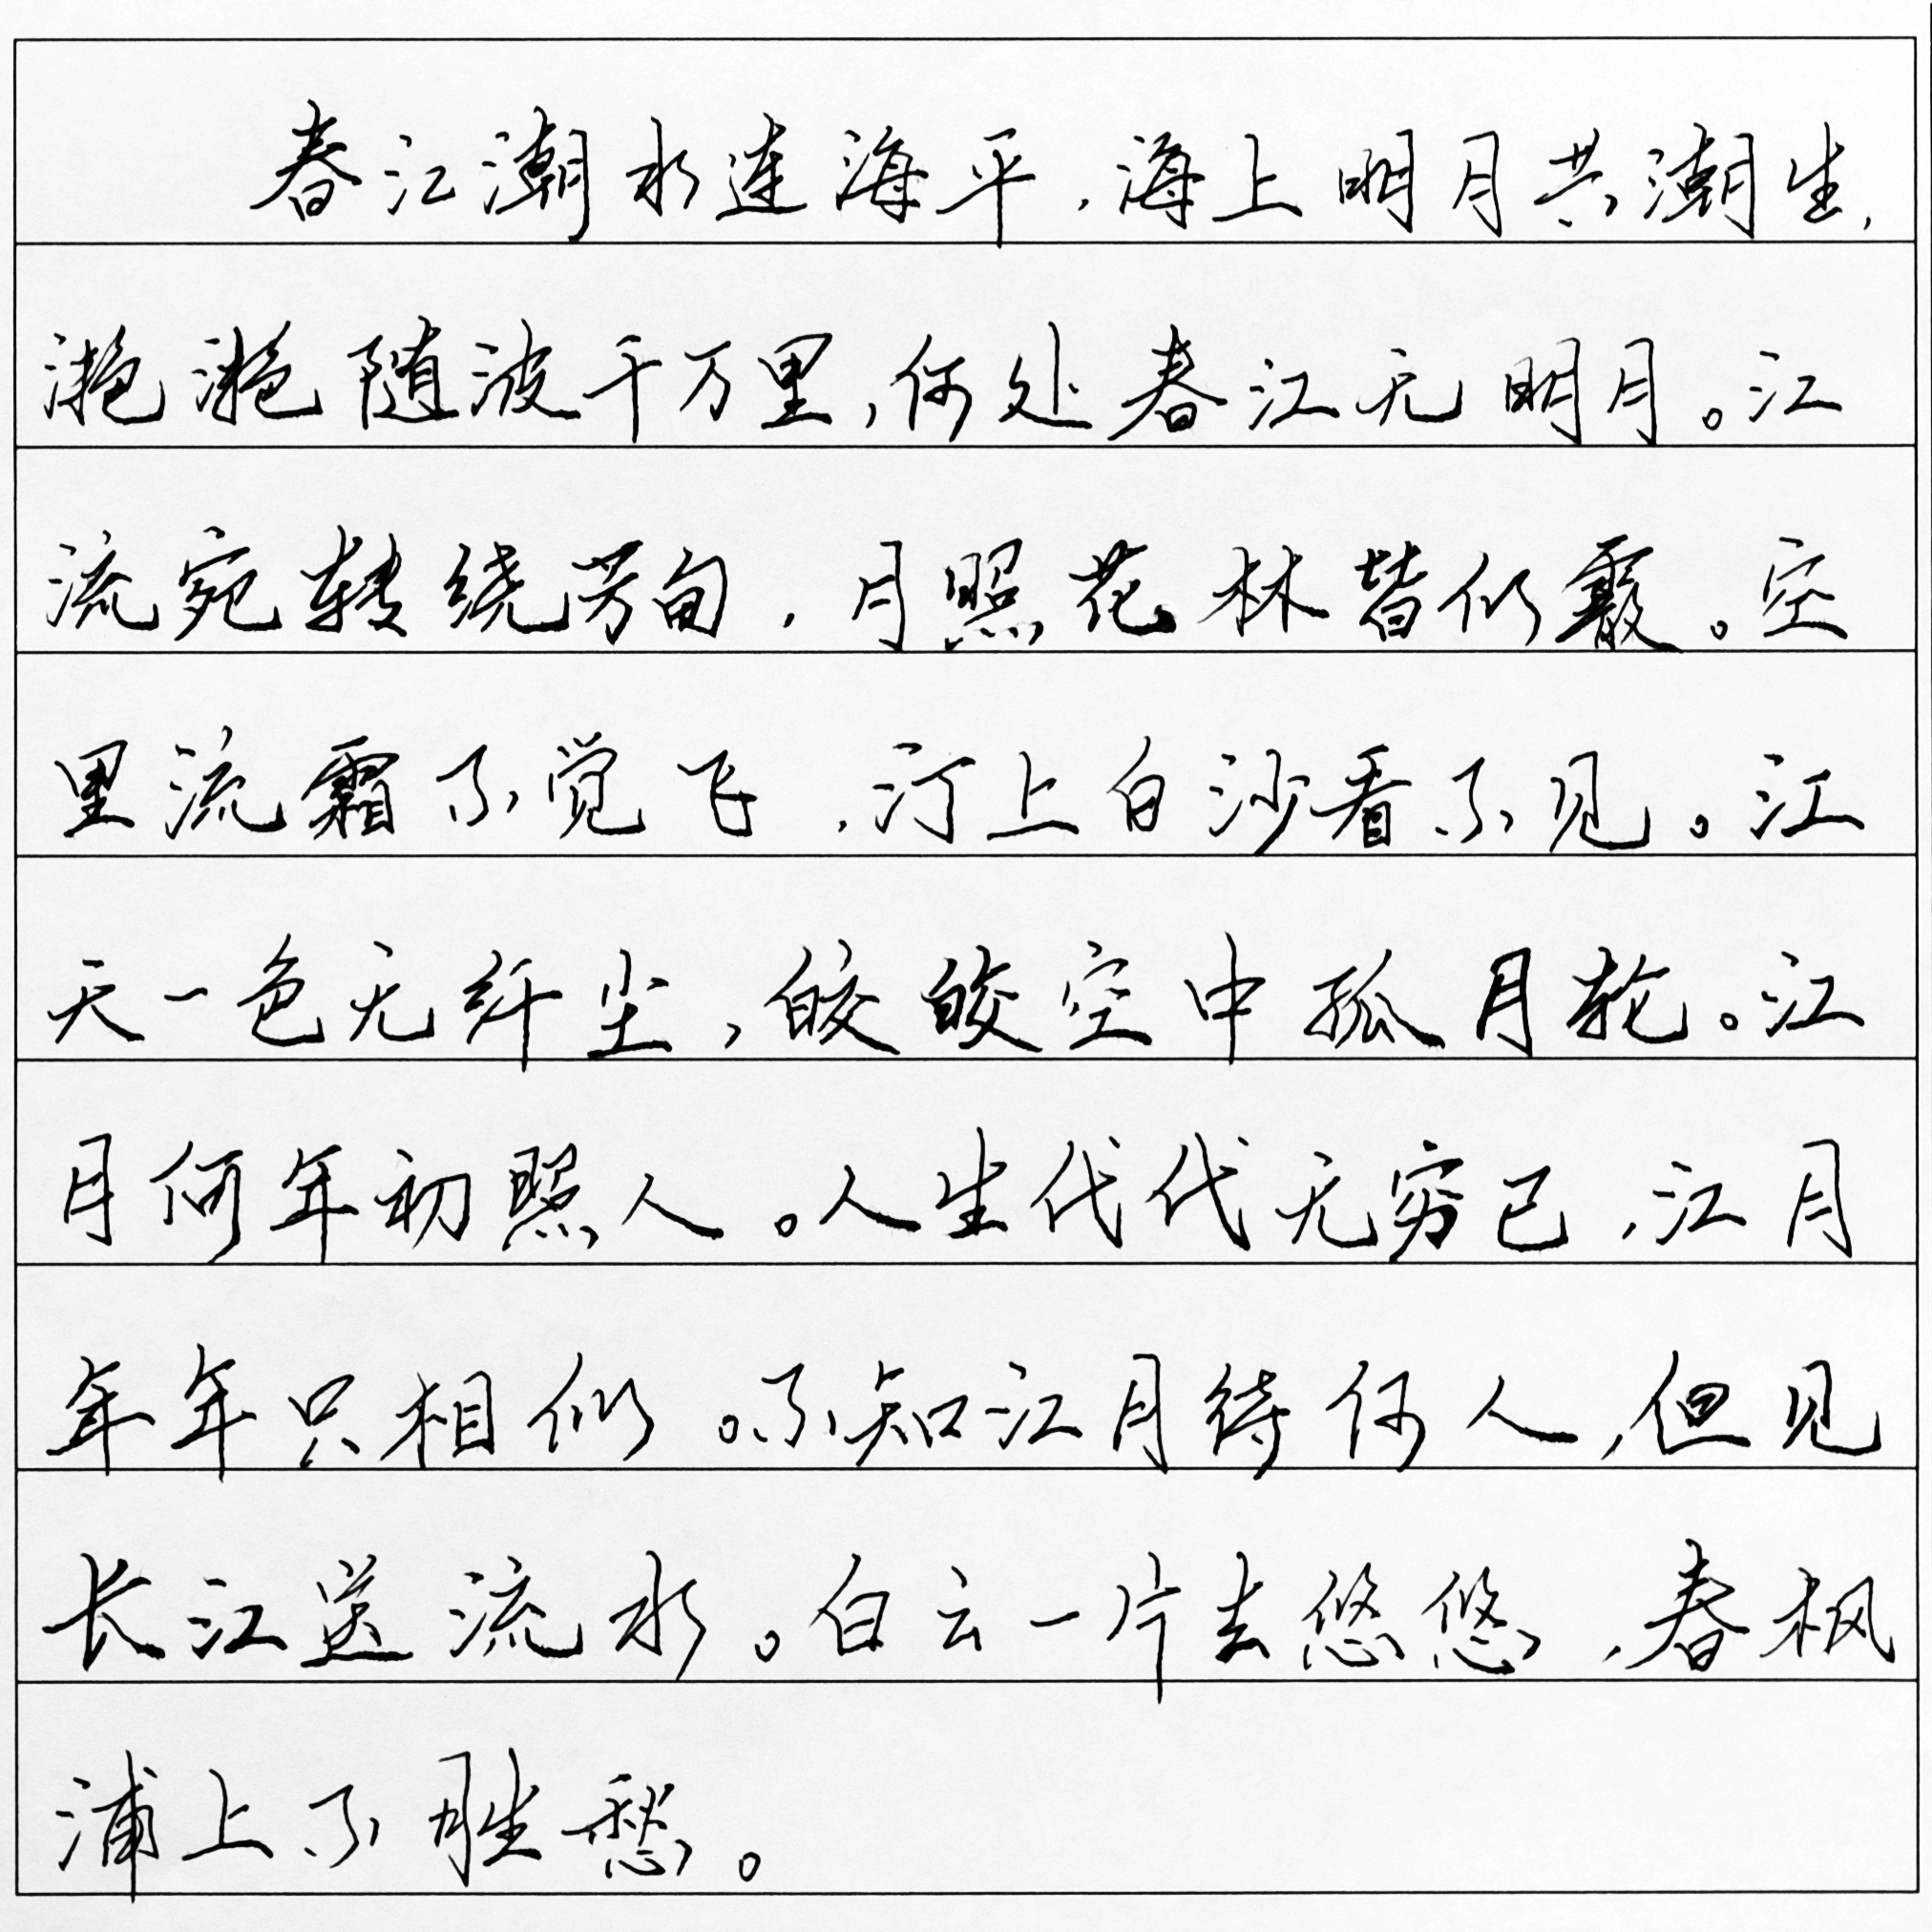 春江潮水连海平,海上明月共潮生,
滟滟随波千万里,何处春江无明月。江
流宛转绕芳甸,月照花林皆似霰。空
里流霜不觉飞,汀上白沙看不见。江
天一色无纤尘,皎皎空中孤月轮。江
月何年初照人。人生代代无穷已,江月
年年只相似。不知江月待何人,但见
长江送流水。白云一片去悠悠,春枫
浦上不胜愁。